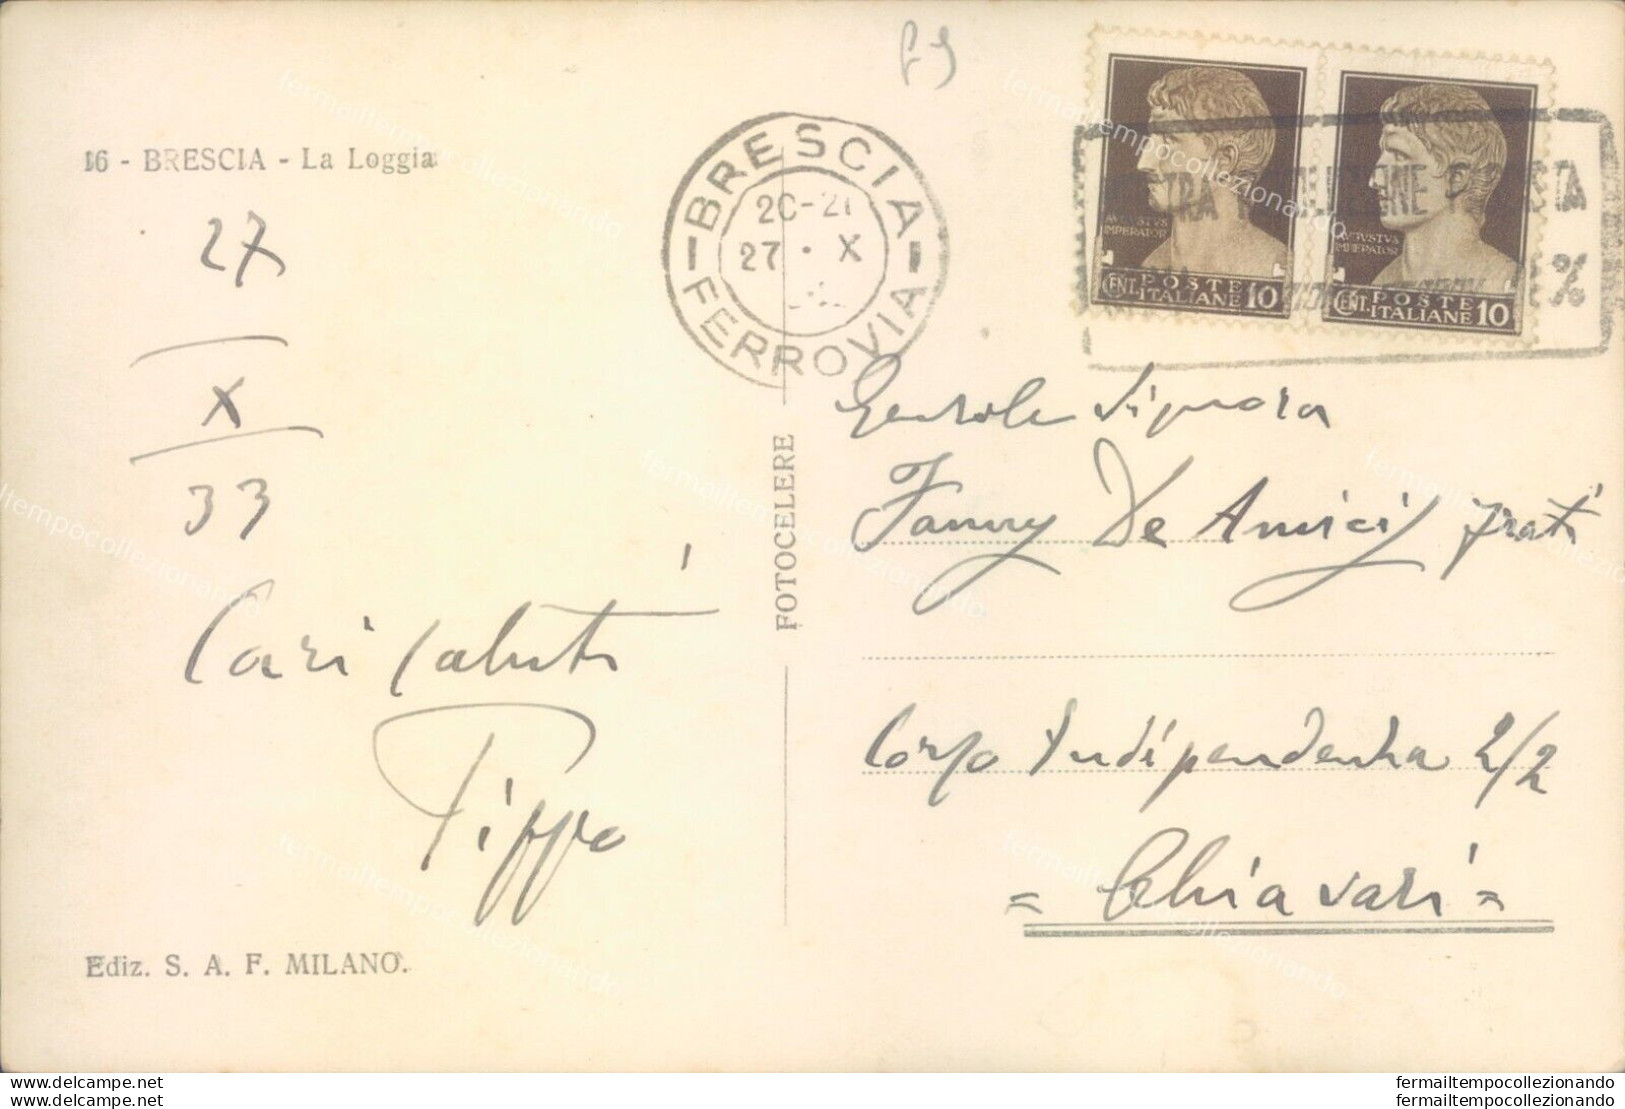 16 - BRESCIA - La Loggia
27
X
33
Cari saluti
Pippo
Ediz. S. A. F. MILANO.
FOTOCELERE
BRESCIA
20-21
27 · X
FERROVIA
AVGVSTVS
IMPERATOR
CENT. POSTE
ITALIANE 10
AVGVSTVS
IMPERATOR
CENT. POSTE
ITALIANE 10
%
Gentile Signora
Fanny De Amicis Prati
Corso Indipendenza 2/2
= Chiavari =
fermailtempocollezionando
www.delcampe.net
www.delcampe.net
fermailtempocollezionando
fermailtempocollezionando